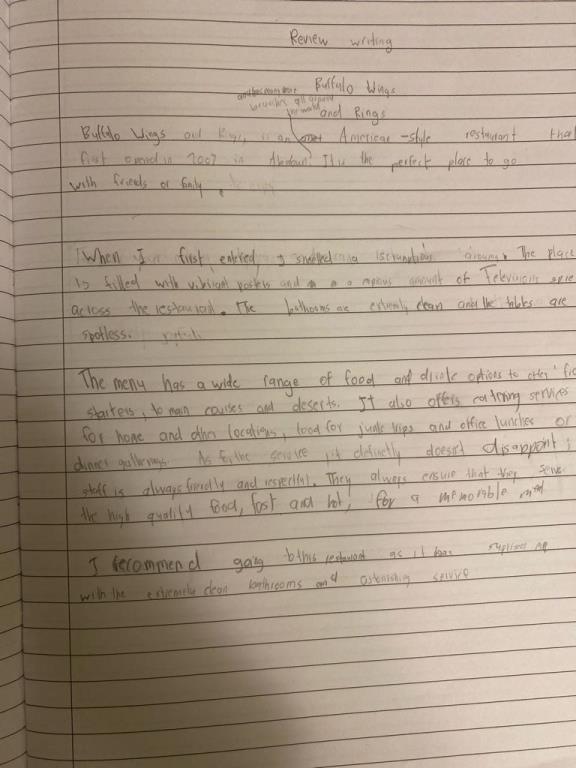 Review writing
Buffalo Wings
and Rings
Buffalo Wings and Rings, is an American-style restaurant that
first opened in 2007 in Abdoun. It is the perfect place to go
with friends or family.
When I first entered I smelled aroma. The place
is filled with vibriant posters and a amount of Televisions
across the restaurant. The bathrooms are extremly clean and the tables are
spotless.
The menu has a wide range of food and drink options to offer
starters, to main courses and deserts. It also offers catering services
for home and other locations, food for trips and office lunches or
dinner gatherings. As for the service, it definetly doesn't disappoint;
staff is always friendly and respectful. They always ensure that they serve
the high quality food, fast and hot, for a memorable
I recommend going to this restaurant as it has me
with the extremely clean bathrooms and astonishing service